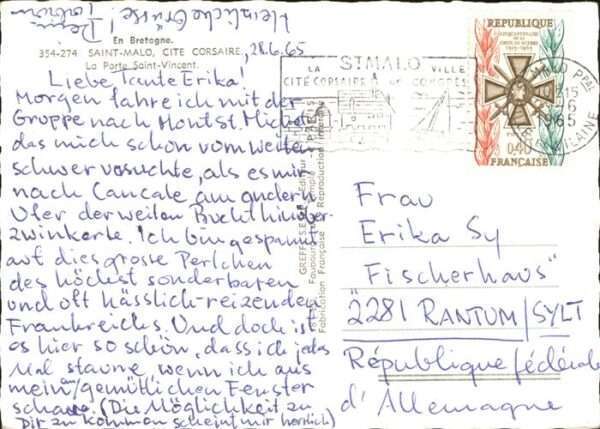 Herzliche Grüsse!
Dein
En Bretagne.
354-274. SAINT-MALO, CITE CORSAIRE.
La Porte Saint-Vincent.
28.6.65
Liebe Tante Erika!
Morgen fahre ich mit der
Gruppe nach Mont St Michel
das mich schon vom weiten
schwer versuchte, als es mir
nach Cancale am andern
Ufer der weiten Bucht hinüber-
zwinkerte. Ich bin gespannt
auf dies grosse Perlchen
des höchst sonderbaren
und oft hässlich-reizenden
Frankreichs. Und doch ist
es hier so schön, dass ich jedes
Mal staune wenn ich aus
meinem gemütlichen Fenster
schaue. (Die Möglichkeit zu
Dir zu kommen scheint mir herrlich)
GREFF, S.E.
Fabrication Française - Reproduction Interdite
LA
ST MALO VILLE
CITÉ CORSAIRE DE CONGRES
REPUBLIQUE
1915-1965
0,40
FRANÇAISE
ST MALO PPAL
15
6
1965
ILLE ET VILAINE
Frau
Erika Sy
"Fischerhaus"
2281 RANTUM/SYLT
République fédérale
d'Allemagne